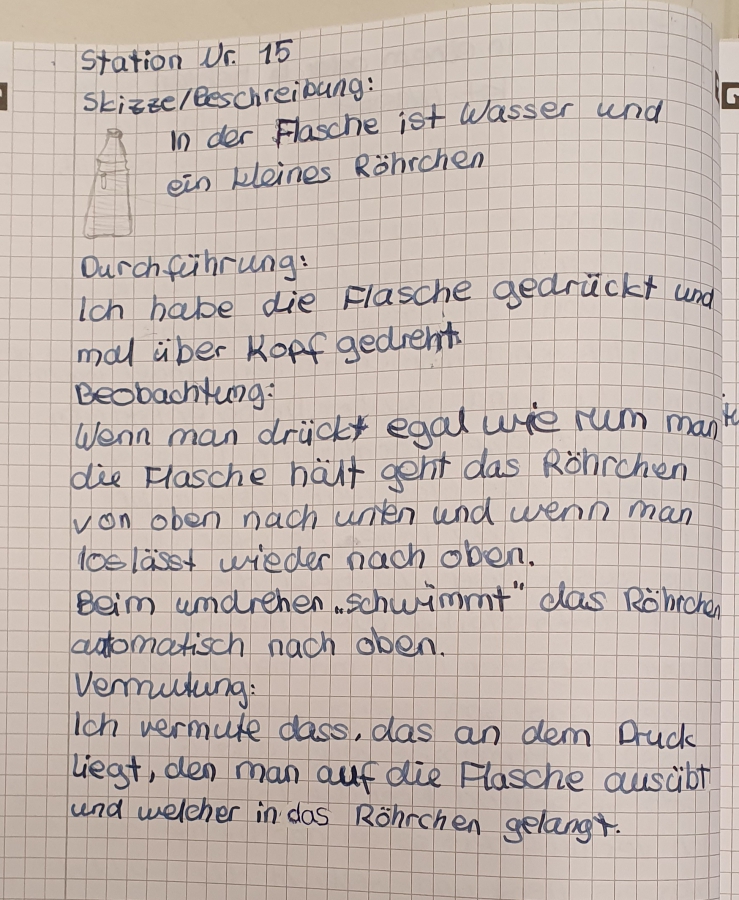 Station Nr. 15
Skizze/Beschreibung:
In der Flasche ist Wasser und
ein kleines Röhrchen
Durchführung:
Ich habe die Flasche gedrückt und
mal über Kopf gedreht.
Beobachtung:
Wenn man drückt egal wie rum man
die Flasche hält geht das Röhrchen
von oben nach unten und wenn man
loslässt wieder nach oben.
Beim umdrehen „schwimmt" das Röhrchen
automatisch nach oben.
Vermutung:
Ich vermute dass, das an dem Druck
liegt, den man auf die Flasche ausübt
und welcher in das Röhrchen gelangt.